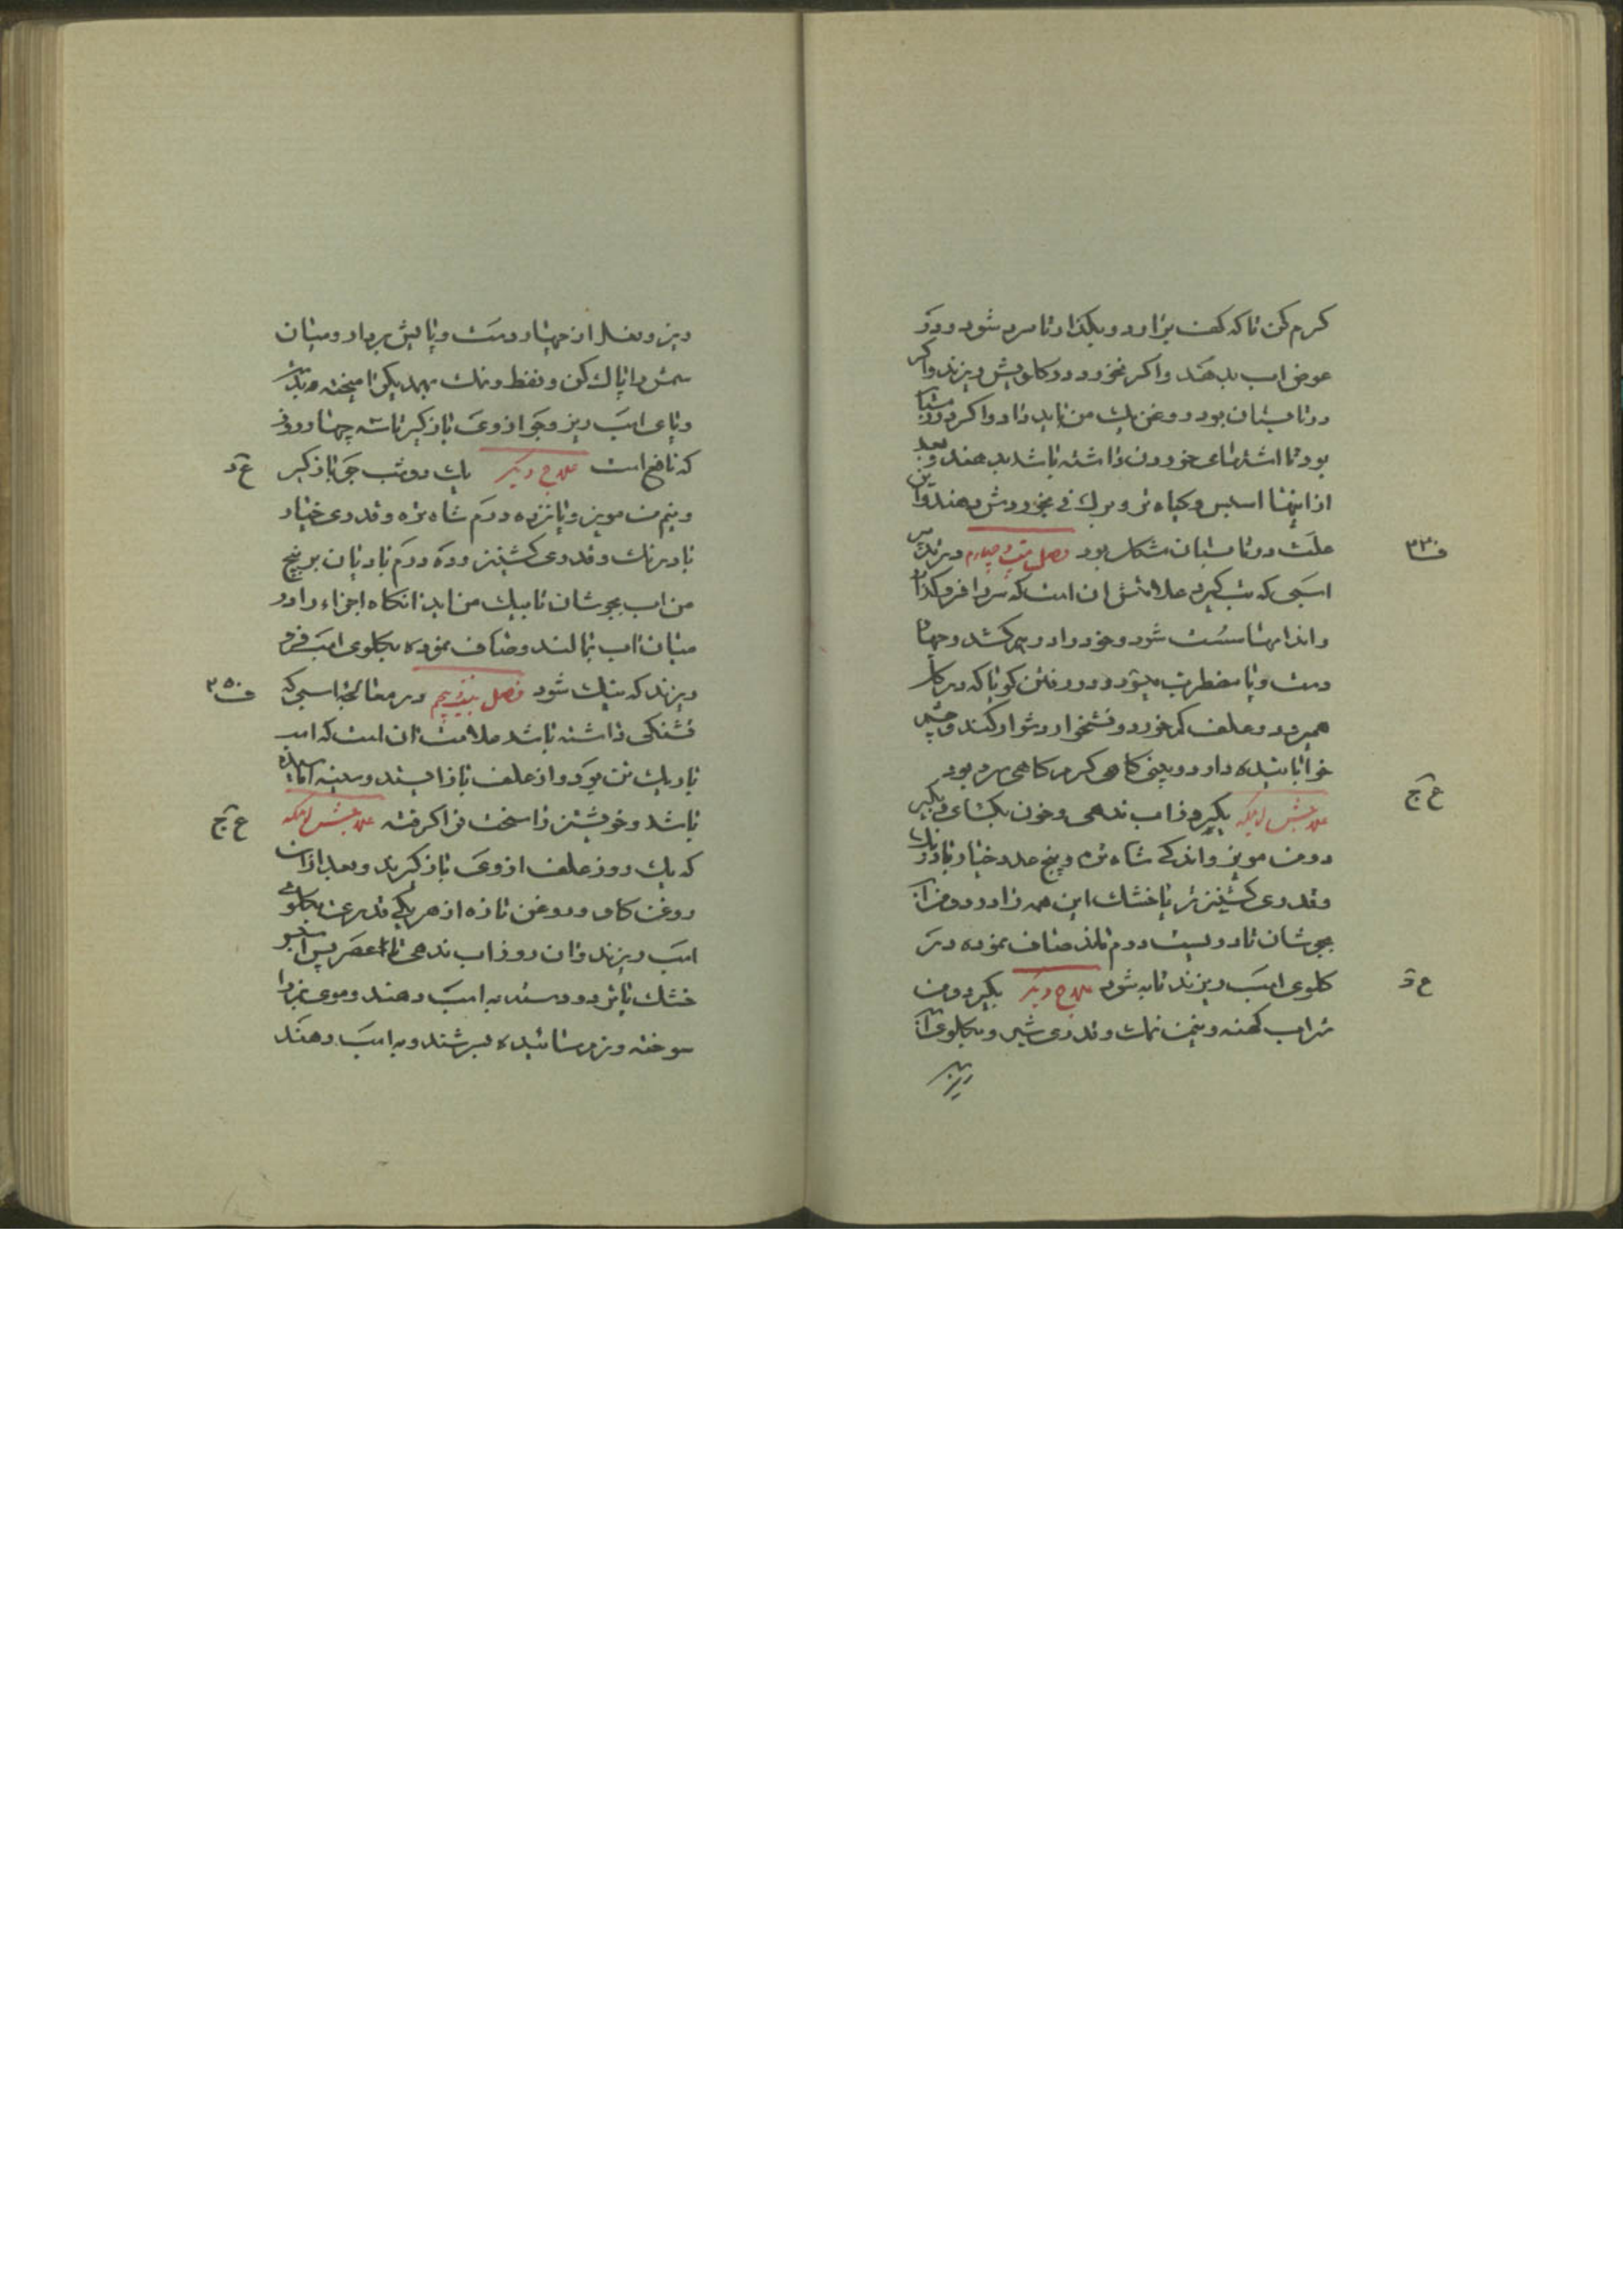 کرم کن تا که کف برآرد و بگذار تا سرد شود و در
عوض آب بدهند و اکر نخورد در کلویش ریزند و اکر
در تابستان بود روغن یك من باید داد و اکر در زمستان
بود تا اشتهای خوردن داشته باشد بدهند و بعد
از اینها اسبس و کیاه تر و برك نی بخوردش دهند و این
علت در تابستان مشکل بود فصل بیست و چهارم در
اسبی که تب کیرد علامتش آن است که سر را فرو کذارد
و اندامها سست شود و خود را در هم کشد و چهار
دست و پا مضطرب میشود و در رفتن کویا که در کار
همیرد و علف کم خورد و نشخوار دشوار کند و چشم
خوابانیده دارد و بینی کاهی کرم و کاهی سرد بود
علاجش آنکه بکیرد و آب ندهی و خون بکشای و بکیر
دو من مویز و اندکی شاه تره و پنج عدد خیار بادرنك
و قدری کشنیز تر یا خشك این همه را در دو من آب
بجوشان تا دویست درم بماند صاف نموده در
کلوی اسب ریزند تا به شود علاج دیکر بکیر دو من
شراب کهنه و نیمن نمك و قدری شیر و بکلوی آن
ریز
ف ۲۳۰
ع ج
ع د
ریز و نعل از چهار دست و پایش بردار و میان
سمش را پاك کن و نفط و نمك بهمدیکر آمیخته
و پای اسب ریز و جو از وی باز کیر تا سه چهار روز
که نافع است علاج دیکر یك دو شب جو باز کیر
و نیم من مویز و پانزده درم شاه تره و قدری خیار
بادرنك و قدری کشنیز و ده درم بادیان بر پنج
من آب بجوشان تا بیك من آید آنکاه اجزاء را در
میان آب بمالند و صاف نموده بکلوی اسب فرو
ریزند که نیك شود فصل بیست و پنجم در معالجه اسبی که
تشنکی داشته باشد علامت آن است که اسب
باریك تن بود و از علف باز ایستد و سینه آماسیده
باشد و خویشتن را سخت فرا کرفته علاجش آنکه
که یك روز علف از وی باز کیرند و بعد از آن
روغن کاو و روغن تازه از هر یکی قدری بکلوی
اسب ریزند و آن روز آب ندهی تا عصر پس اسبس
خشك یا تر دو دسته به اسب دهند و موی بز را
سوخته و نرم سائیده بسرشند و به اسب دهند
ع د
ف ۲۵۰
ع ج